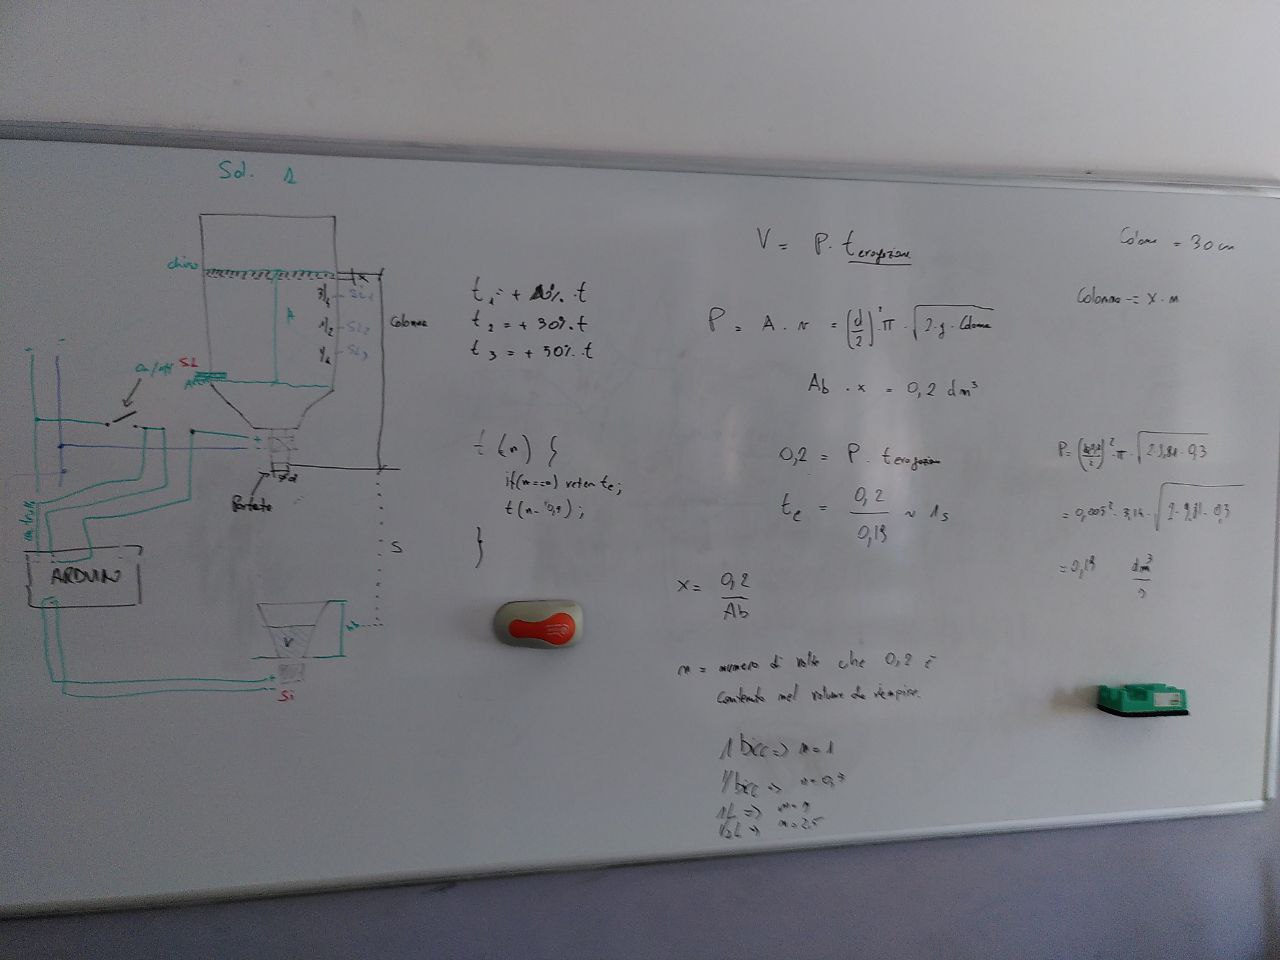 Sol. 1
chiuso
3/4 SL1
1/2 SL2
1/4 SL3
A
x
Colonna
SL
on/off
+
-
d
Portata
ARDUIN
S
V
+
-
Si
t1 = + 10%. t
t2 = + 30%. t
t3 = + 50%. t
t (n) {
if(n==0) return te;
}
V = P. t erogazione
P = A. v = (d/2)² π . √2.g. Colonna
Ab . x = 0,2 dm³
0,2 = P. t erogazione
te = 0,2 / 0,13 ~ 1s
x = 0,2 / Ab
n = numero di volte che 0,2 è
contenuto nel volume da riempire.
1 bicc => n = 1
1L =>
1/2L => n = 2,5
Colonna = 30 cm
Colonna -= x . n
√2.9,81.0,3
= 0,005² . 3,14 . √2.9,81.0,3
dm³ / s